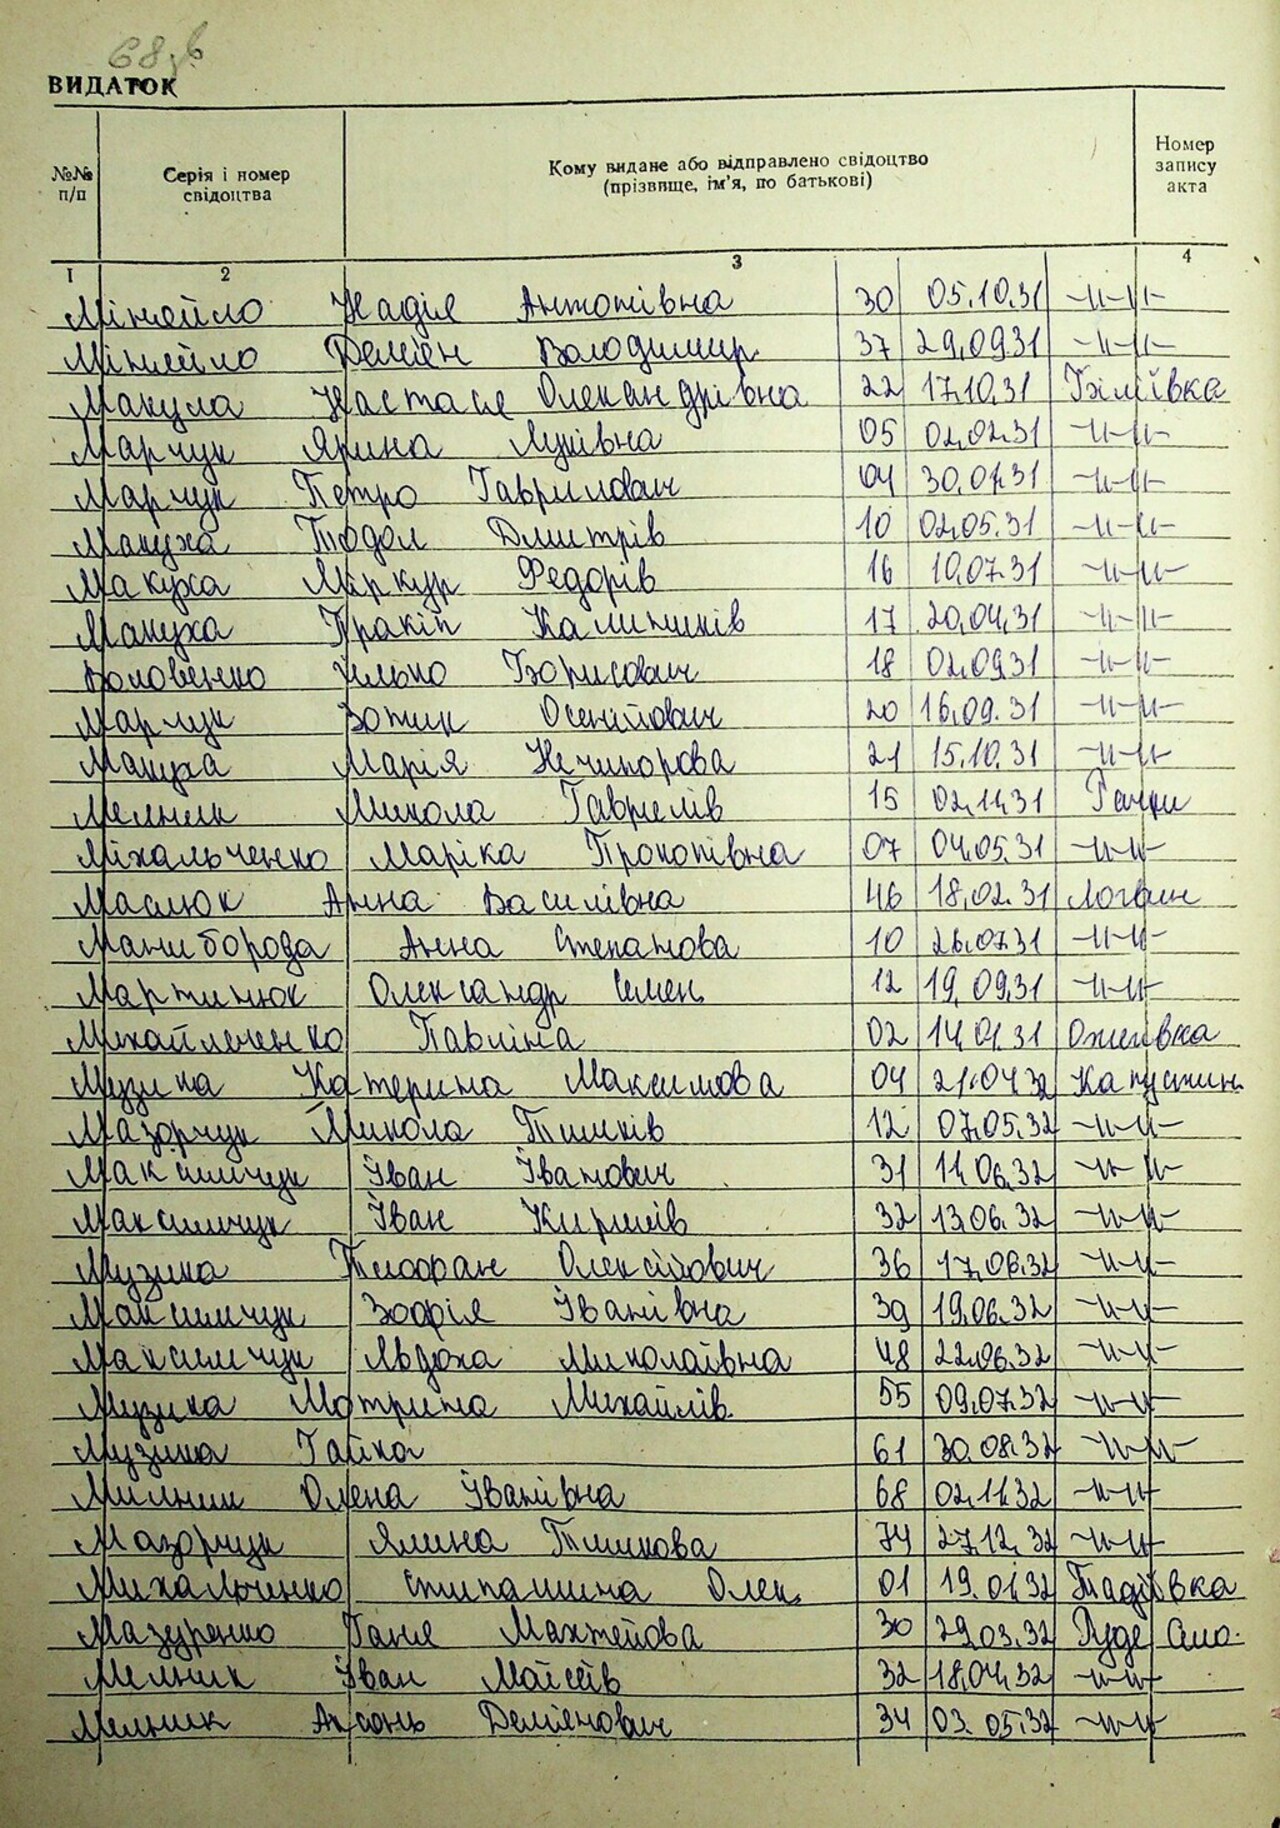 68зв
ВИДАТОК
№№ п/п
Серія і номер свідоцтва
Кому видане або відправлено свідоцтво (прізвище, ім'я, по батькові)
Номер запису акта
1 2 3 4
Надія Антонівна 30 05.10.31 -"-"-
Демієн Володимир 37 29.09.31 -"-"-
Макула Настасія Олександрівна 22 17.10.31 Біліївка
Марчук Ярина Луківна 05 02.02.31 -"-"-
Марчук Петро Гаврилович 04 30.01.31 -"-"-
Макуха Тодол Дмитрів 10 02.05.31 -"-"-
Макуха Міркур Федорів 16 10.07.31 -"-"-
Макуха Пракіп 17 20.04.31 -"-"-
Воловенко Борисович 18 02.09.31 -"-"-
Марчук Зотик 20 16.09.31 -"-"-
Макуха Марія Нечипорова 21 15.10.31 -"-"-
Мельник Микола Гаврилів 15 02.11.31 Рачки
Міхальченко Маріка Прокопівна 07 04.05.31 -"-"-
Маслюк Анна Василівна 46 18.02.31
Маниборода Анна Степанова 10 26.07.31 -"-"-
Мартинюк Олександр Семен. 12 19.09.31 -"-"-
Михайлеченко Павліна 02 14.01.31
Музика Катерина Максимова 04 21.04.32 Капустин
Мазорчук Микола Тишків 12 07.05.32 -"-"-
Максимчук Іван Іванович 31 11.06.32 -"-"-
Максимчук Іван Кирилів 32 13.06.32 -"-"-
Музика Тиофан Олексійович 36 17.06.32 -"-"-
Максимчук Зофія Іванівна 39 19.06.32 -"-"-
Максимчук Явдоха Миколаївна 48 22.06.32 -"-"-
Музика Мотрина Михайлів. 55 09.07.32 -"-"-
Музика Гапка 61 30.08.32 -"-"-
Мильник Олена Іванівна 68 02.11.32 -"-"-
Мазорчук Ялина Тишкова 74 27.12.32 -"-"-
Михальченко Стипанина Олек. 01 19.01.32 Тадіївка
Мазуренко Ганя Махтейова 30 29.03.32
Мельник Іван Мойсеїв 32 18.04.32 -"-"-
Мельник Аксонь Демянович 34 03.05.32 -"-"-